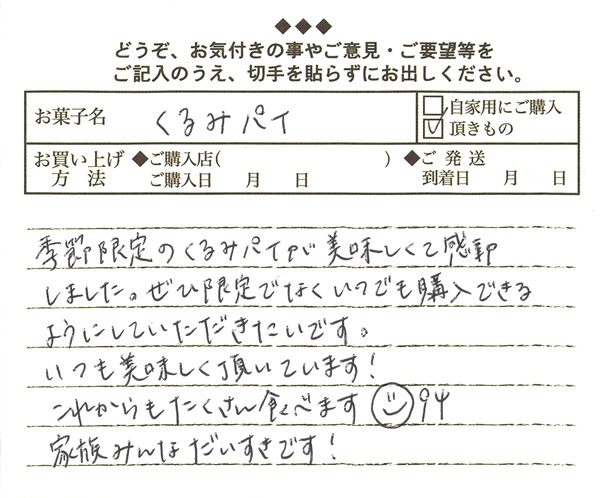 ◆◆◆
どうぞ、お気付きの事やご意見・ご要望等を
ご記入のうえ、切手を貼らずにお出しください。
お菓子名 くるみパイ □自家用にご購入
☑頂きもの
お買い上げ ◆ご購入店( ) ◆ご発送
方法 ご購入日 月 日 到着日 月 日
季節限定のくるみパイが美味しくて感動
しました。ぜひ限定でなくいつでも購入できる
ようにしていただきたいです。
いつも美味しく頂いています!
これからもたくさん食べます
家族みんなだいすきです!